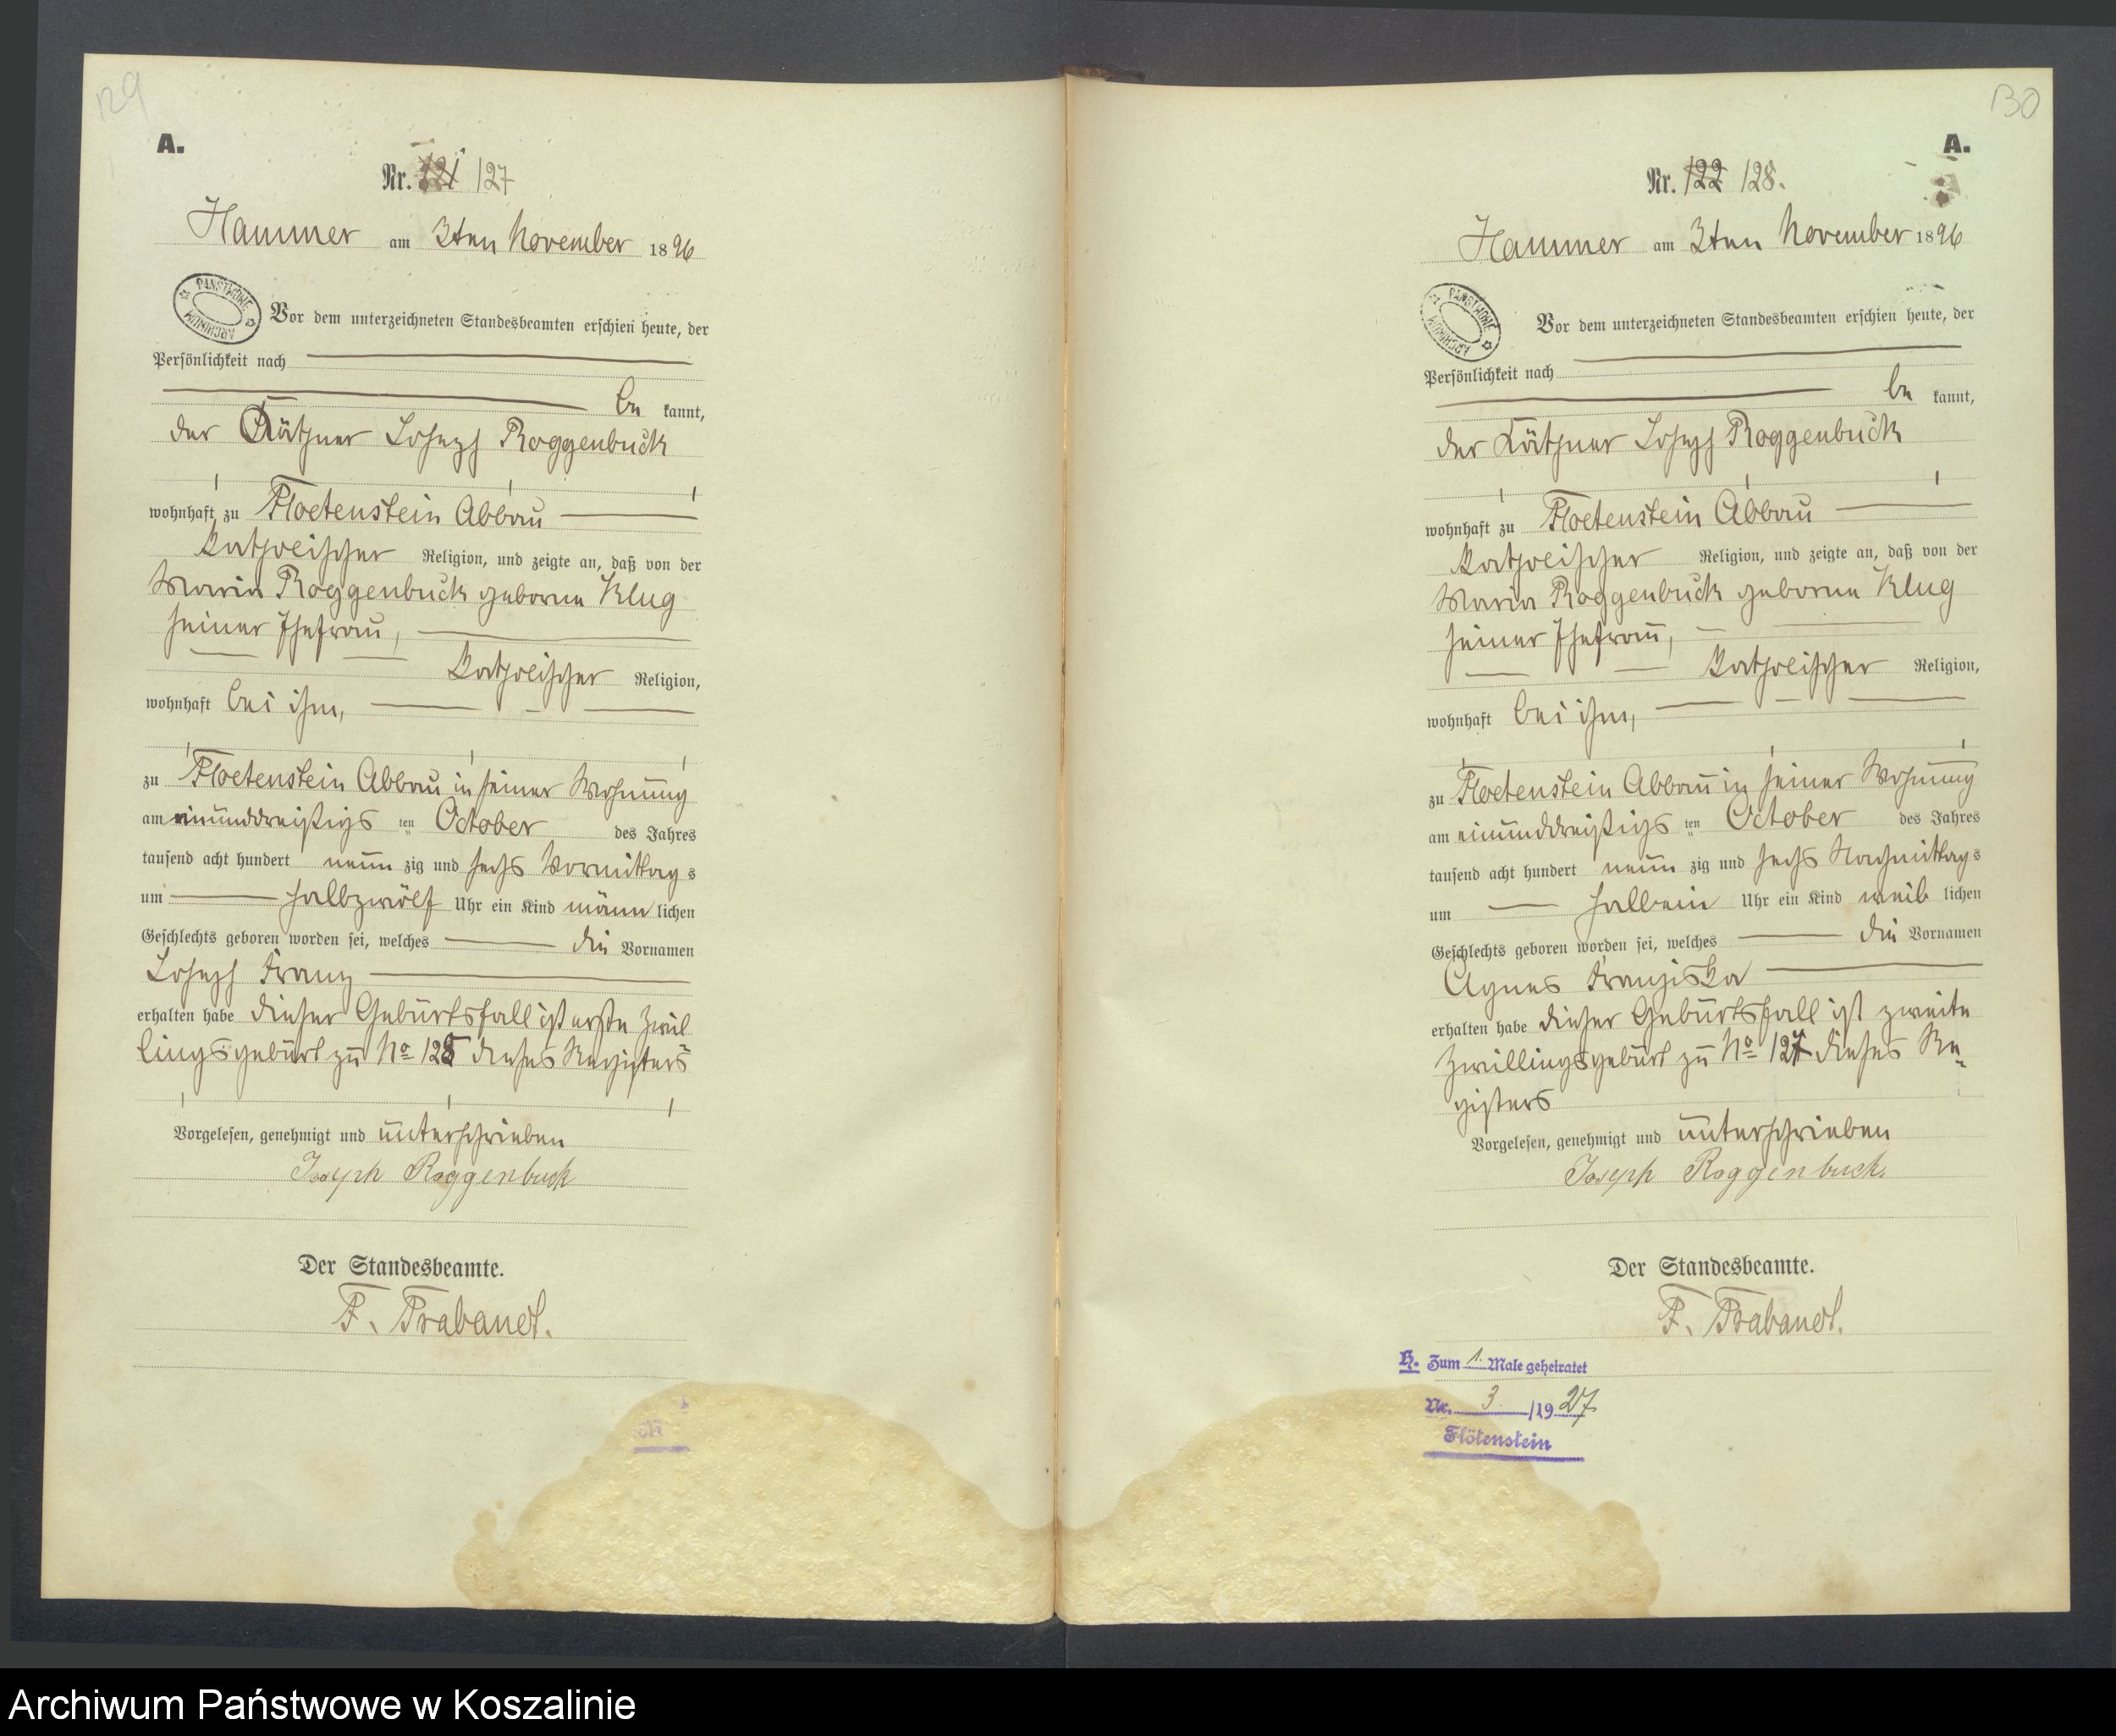 129
A.
Nr. 121 127
Hammer am 3ten November 1896
PAŃSTWOWE ARCHIWUM
Vor dem unterzeichneten Standesbeamten erschien heute, der
Persönlichkeit nach
be kannt,
der Käthner Joseph Roggenbuck
wohnhaft zu Floetenstein Abbau
katholischer Religion, und zeigte an, daß von der
Maria Roggenbuck geborne Klug
seiner Ehefrau,
katholischer Religion,
wohnhaft bei ihm,
zu Floetenstein Abbau in seiner Wohnung
am einunddreißigs ten October des Jahres
tausend acht hundert neun zig und sechs Vormittag s
um halbzwölf Uhr ein Kind männ lichen
Geschlechts geboren worden sei, welches die Vornamen
Joseph Franz
erhalten habe dieser Geburtsfall ist erste Zwil
lingsgeburt zu No 128 dieses Registers
Vorgelesen, genehmigt und unterschrieben
Joseph Roggenbuck
Der Standesbeamte.
F. Trabandt.
130
A.
Nr. 122 128.
Hammer am 3ten November 1896
PAŃSTWOWE ARCHIWUM
Vor dem unterzeichneten Standesbeamten erschien heute, der
Persönlichkeit nach
be kannt,
der Käthner Joseph Roggenbuck
wohnhaft zu Floetenstein Abbau
katholischer Religion, und zeigte an, daß von der
Maria Roggenbuck geborne Klug
seiner Ehefrau,
katholischer Religion,
wohnhaft bei ihm,
zu Floetenstein Abbau in seiner Wohnung
am einunddreißigs ten October des Jahres
tausend acht hundert neun zig und sechs Nachmittag s
um halbein Uhr ein Kind weib lichen
Geschlechts geboren worden sei, welches die Vornamen
Agnes Franziska
erhalten habe dieser Geburtsfall ist zweite
Zwillingsgeburt zu No 127 dieses Re-
gisters
Vorgelesen, genehmigt und unterschrieben
Joseph Roggenbuck.
Der Standesbeamte.
F. Trabandt.
H. Zum 1. Male geheiratet
Nr. 3. /19 27
Flötenstein
Archiwum Państwowe w Koszalinie